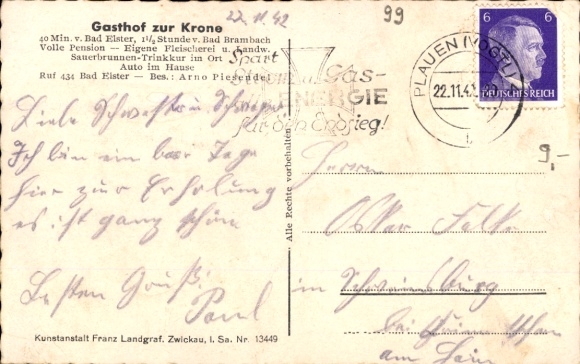 22.11.42
99
Gasthof zur Krone
40 Min. v. Bad Elster, 1½ Stunde v. Bad Brambach
Volle Pension — Eigene Fleischerei u. Landw.
Sauerbrunnen-Trinkkur im Ort
Auto im Hause
Ruf 434 Bad Elster — Bes.: Arno Piesendel
Spart
u. Gas-
ENERGIE
für den Endsieg!
PLAUEN (VOGTL)
22.11.42
6 6
DEUTSCHES REICH
9,-
Liebe Schwester u. Schwager
Ich bin ein paar Tage
hier zur Erholung
es ist ganz schön
Besten Gruß!
Paul
Alle Rechte vorbehalten
Herrn
Oskar Falke
in
bei
am
Kunstanstalt Franz Landgraf. Zwickau, i. Sa. Nr. 13449